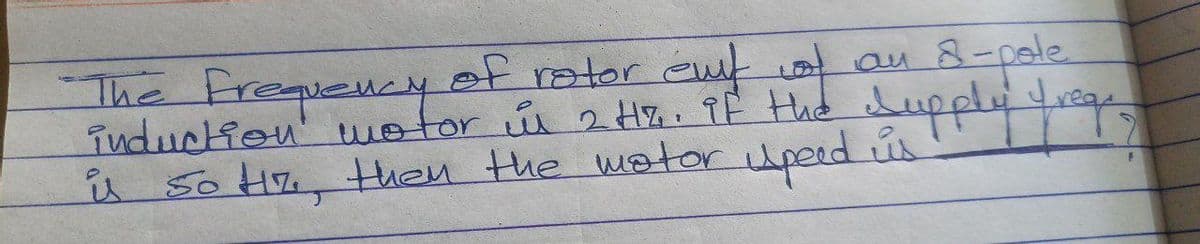 The frequency of rotor emf of an 8-pole
induction motor is 2 Hz. If the supply freq.
is 50 Hz, then the motor speed is ______?